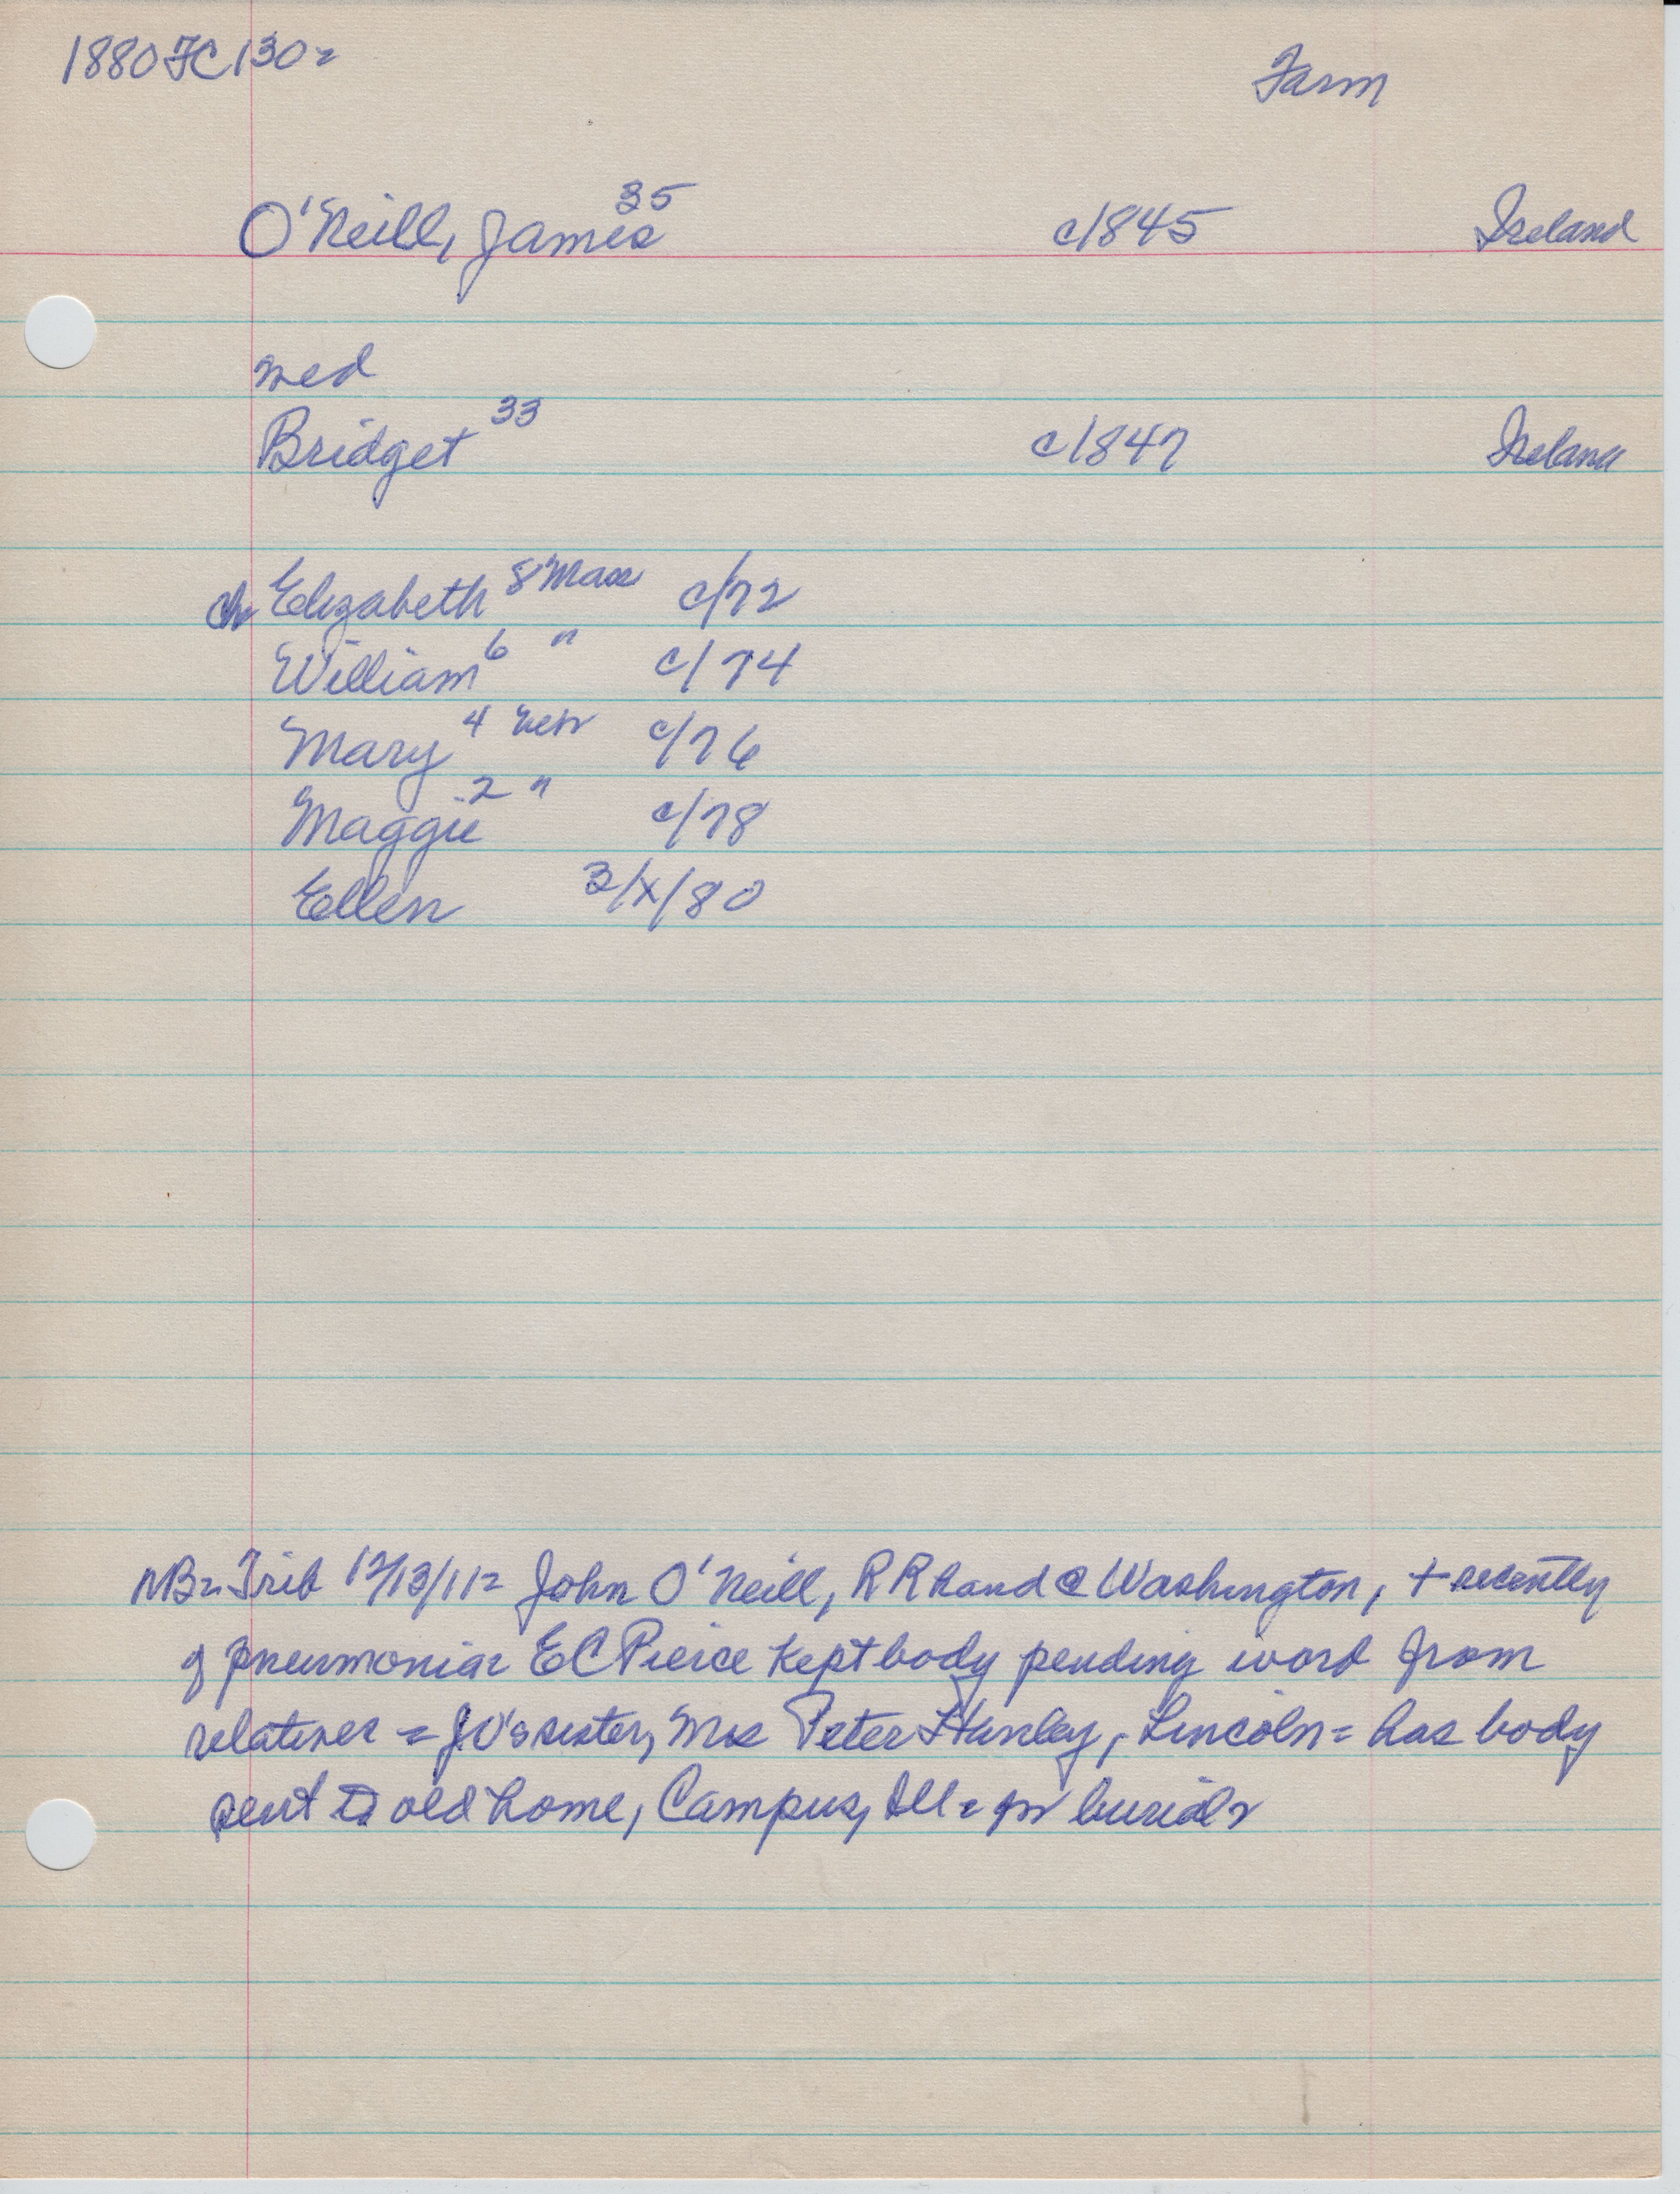 1880 FC 130= Farm
O'Neill, James 35 c/1845 Ireland
med
Bridget 33 c/1847 Ireland
ch Elizabeth 8 Mass c/72
William 6 " c/74
Mary 4 Neb c/76
Maggie 2 " c/78
Ellen 3/X/80
NB= Trib 12/13/11= John O'Neill, RR hand @ Washington, + recently
of pneumonia= E C Pierce kept body pending word from
relatives = JO's sister, Mrs Peter Hanley, Lincoln= has body
sent to old home, Campus, Ill= for burial=